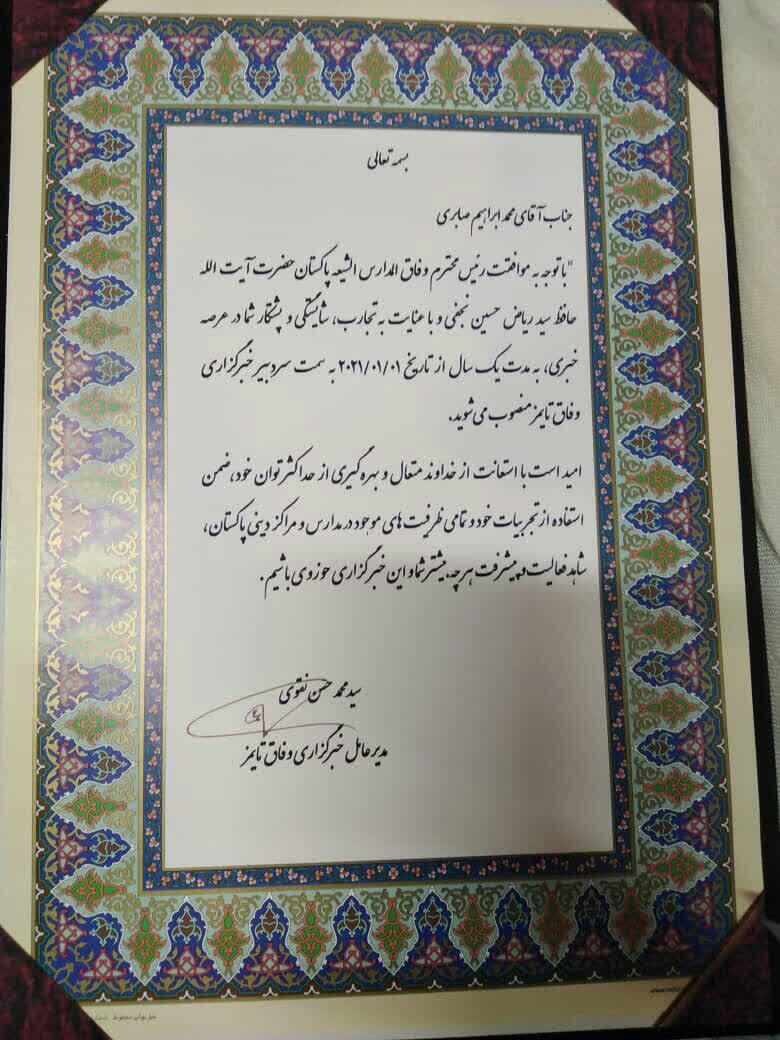 بسمه تعالی
جناب آقای محمد ابراهیم صابری
"با توجه به موافقت رئیس محترم وفاق المدارس الشیعه پاکستان حضرت آیت الله
حافظ سید ریاض حسین نجفی و با عنایت به تجارب، شایستگی و پشتکار شما در عرصه
خبری، به مدت یک سال از تاریخ ۲۰۲۱/۰۱/۰۱ به سمت سردبیر خبرگزاری
وفاق تایمز منصوب می شوید.
امید است با استعانت از خداوند متعال و بهره گیری از حداکثر توان خود، ضمن
استفاده از تجربیات خود و تمامی ظرفیت های موجود در مدارس و مراکز دینی پاکستان،
شاهد فعالیت و پیشرفت هر چه بیشتر شما و این خبرگزاری حوزوی باشیم.
سید محمد حسن نقوی
مدیر عامل خبرگزاری وفاق تایمز